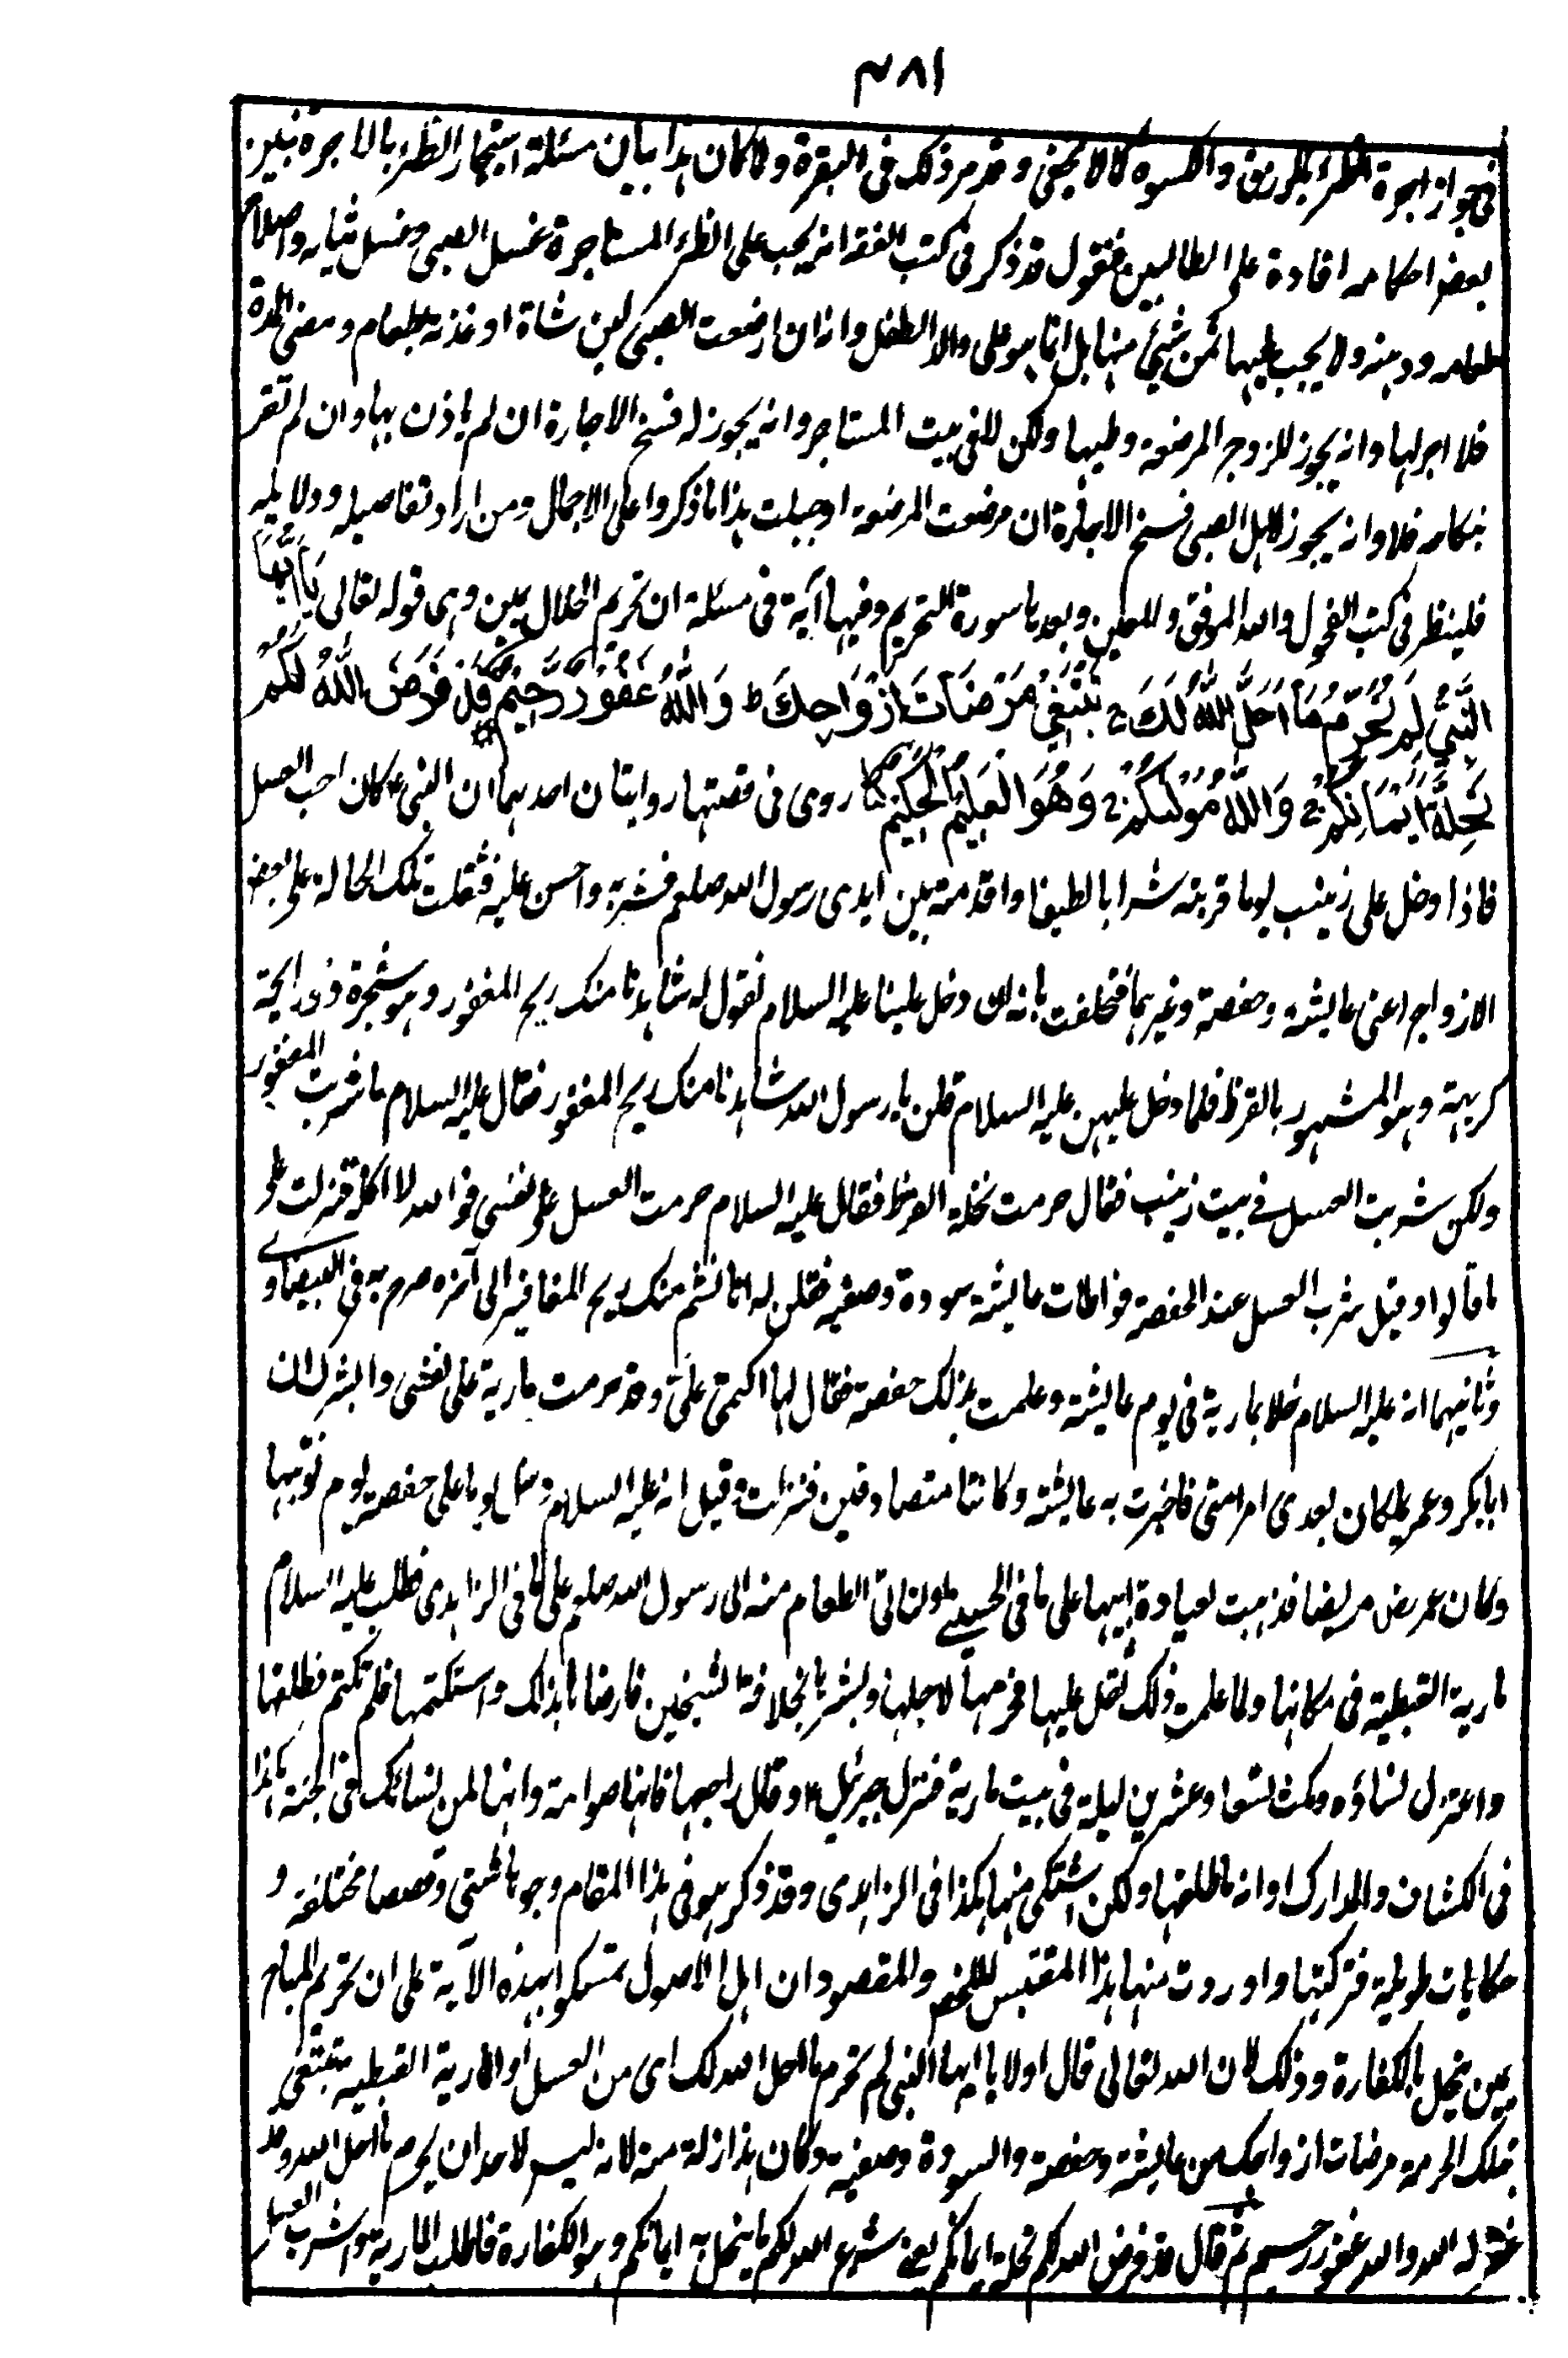 ٤٨١
فى جواز اجرة الظئر بالرزق والكسوة كما لا يخفى وقد مر ذلك فى البقرة ولما كان هذا بيان مسئلة استيجار الظئر بالاجرة نبين
بعض احكامه افادة على الطالبين فنقول قد ذكر فى كتب الفقه انه يجب على الظئر المستاجرة غسل الصبى وغسل ثيابه واصلاح
طعامه ودهنه ولا يجب عليها ثمن شئ منها بل انما هو على والد الطفل وانه ان ارضعت الصبى لبن شاة او غذته بطعام ومضى المدة
فلا اجر لها وانه يجوز للزوج المرضعة وطيها ولكن لا فى بيت المستاجر وانه يجوز له فسخ الاجارة ان لم ياذن بها وان لم تقر
بنكاحه فلا وانه يجوز لاهل الصبى فسخ الاجارة ان مرضت المرضعة او حبلت هذا ما ذكروا على الاجمال ومن اراد تفاصيله ودلايله
فلينظر فى كتب الفحول والله الموفق والمعين وبعدها سورة التحريم وفيها آية فى مسئلة ان تحريم الحلال يمين وهى قوله تعالى يَا أَيُّهَا
النَّبِيُّ لِمَ تُحَرِّمُ مَا أَحَلَّ اللَّهُ لَكَ تَبْتَغِي مَرْضَاتَ أَزْوَاجِكَ ط وَاللَّهُ غَفُورٌ رَّحِيمٌ قَدْ فَرَضَ اللَّهُ لَكُمْ
تَحِلَّةَ أَيْمَانِكُمْ وَاللَّهُ مَوْلَىكُمْ وَهُوَ الْعَلِيمُ الْحَكِيمُ روى فى قصتها روايتان احدهما ان النبى ء كان احب العسل
فاذا دخل على زينب يوما قربته شرابا لطيفا واقدمته بين ايدى رسول الله صلعم فشربه واحسن عليه فثقلت تلك الحالة على بعض
الازواج اعنى عايشة وحفصة وغيرهما فحلفت بانه لان دخل علينا عليه السلام نقول له شاهدنا منك ريح المغفور وهو شجرة ذو رايحة
كريهة وهو المشهور بالقرظ فلما دخل عليهن عليه السلام قلن يا رسول الله شاهدنا منك ريح المغفور فقال عليه السلام ما شربت المغفور
ولكن شربت العسل فى بيت زينب فقال حرمت نخلة القرظ فقال عليه السلام حرمت العسل على نفسى فوالله لا اكله فنزلت على
ما قالوا وقيل شرب العسل عند الحفصة فواطات عايشة سودة وصفية فقلن له انا نشم منك ريح المغافير الى آخره صرح به فى البيضاوى
وثانيهما انه عليه السلام خلا بمارية فى يوم عايشة وعلمت بذلك حفصة فقال لها اكتمى على وقد حرمت مارية على نفسى وابشرك ان
ابابكر وعمر يملكان بعدى امر امتى فاخبرت به عايشة وكانتا متصادقين فنزلت وقيل انه عليه السلام دخل يوما على حفصة يوم نوبتها
وكان عمر رض مريضا فذهبت لعيادة ابيها على ما فى الحسينى او لان تاتى الطعام منه الى رسول الله صلعم على ما فى الزاهدى فطلب عليه السلام
مارية القبطية فى مكانها ولما علمت ذلك ثقل عليها فحرمها لاجلها وبشرها بخلافة الشيخين فارضاها بذلك واستكتمها فلم تكتم فطلقها
واعتزل نساؤه ومكث تسعا وعشرين ليلة فى بيت مارية فنزل جبرئيل ۴ وقال راجعها فانها صوامة وانها لمن نسائك فى الجنة هكذا
فى الكشاف والمدارك او انه ما طلقها ولكن اشتكى منها هكذا فى الزاهدى وقد ذكر هو فى هذا المقام وجوها شتى وقصصا مختلفة و
حكايات طويلة فتركتها واوردت منها هذا المقتبس للملخص والمقصود ان اهل الاصول تمسكوا بهذه الآية على ان تحريم المباح
يمين ينحل بالكفارة وذلك لان الله تعالى قال اولا يا ايها النبى لم تحرم ما احل الله لك اى من العسل او المارية القبطية تبتغى
بتلك الحرمة مرضات ازواجك من عايشة وحفصة والسودة وصفية وكان هذا زلة منه لانه ليس لاحد ان يحرم ما احل الله وقد
غفر له الله والله غفور رحيم ثم قال قد فرض الله لكم تحلة ايمانكم يعنى شرع الله لكم ما ينحل به ايمانكم وهو الكفارة فاطلب المارية او اشرب العسل